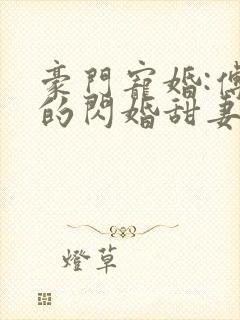 豪門寵婚:
的閃婚甜妻
燈草